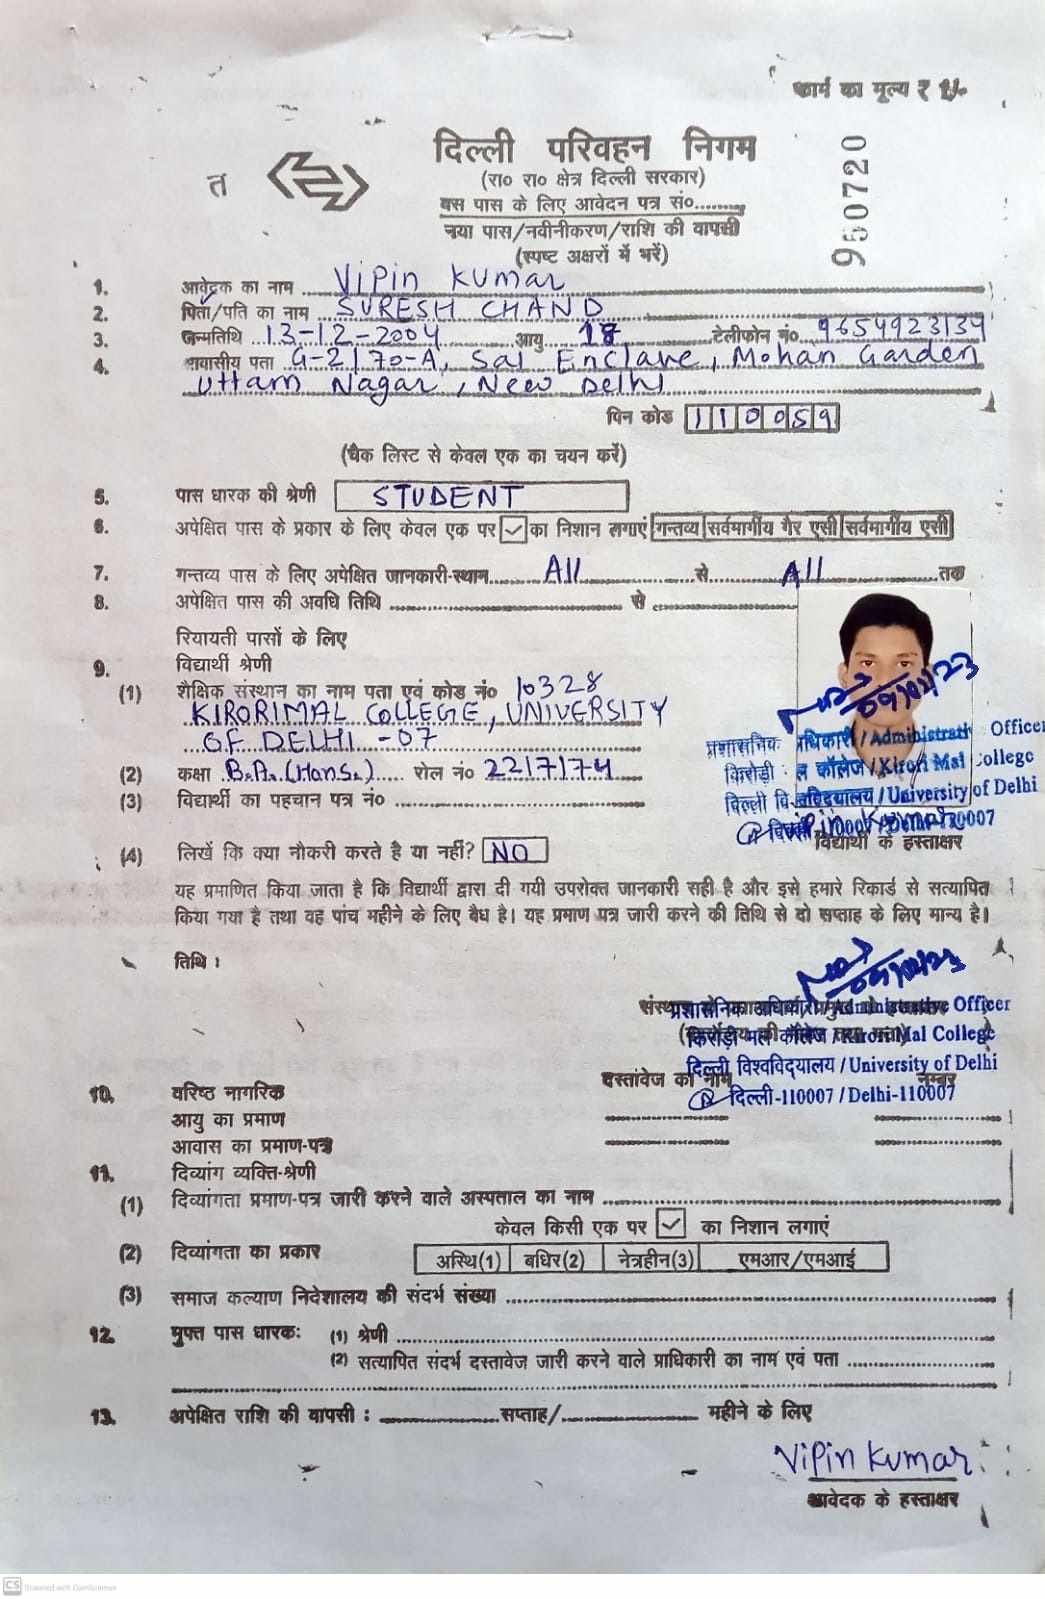 फार्म का मूल्य ₹ 1/-
दिल्ली परिवहन निगम
त
(रा० रा० क्षेत्र दिल्ली सरकार)
बस पास के लिए आवेदन पत्र सं०.........
नया पास/नवीनीकरण/राशि की वापसी
(स्पष्ट अक्षरों में भरें)
950720
1. आवेदक का नाम Vipin Kumar
2. पिता/पति का नाम SURESH CHAND
3. जन्मतिथि 13-12-2004 आयु 18 टेलीफोन नं० 9654923134
4. निवासीय पता G-2/70-A, Sai Enclave, Mohan Garden
Uttam Nagar, New Delhi
पिन कोड 110059
(चैक लिस्ट से केवल एक का चयन करें)
5. पास धारक की श्रेणी STUDENT
6. अपेक्षित पास के प्रकार के लिए केवल एक पर ✓ का निशान लगाएं गन्तव्य सर्वमार्गीय गैर एसी सर्वमार्गीय एसी
7. गन्तव्य पास के लिए अपेक्षित जानकारी-स्थान All से All तक
8. अपेक्षित पास की अवधि तिथि से
रियायती पासों के लिए
9. विद्यार्थी श्रेणी
(1) शैक्षिक संस्थान का नाम पता एवं कोड नं० 10328
KIRORIMAL COLLEGE, UNIVERSITY
OF DELHI -07
(2) कक्षा B.A. (Hons.) रोल नं० 2217174
(3) विद्यार्थी का पहचान पत्र नं०
प्रशासनिक अधिकारी / Administrative Officer
किरोड़ी मल कॉलेज / Kirori Mal College
दिल्ली विश्वविद्यालय / University of Delhi
दिल्ली-110007 / Delhi-110007
Vipin Kumar
विद्यार्थी के हस्ताक्षर
(4) लिखें कि क्या नौकरी करते है या नहीं? NO
यह प्रमाणित किया जाता है कि विद्यार्थी द्वारा दी गयी उपरोक्त जानकारी सही है और इसे हमारे रिकार्ड से सत्यापित
किया गया है तथा वह पांच महीने के लिए बैध है। यह प्रमाण पत्र जारी करने की तिथि से दो सप्ताह के लिए मान्य है।
तिथि :
प्रशासनिक अधिकारी / Administrative Officer
किरोड़ी मल कॉलेज / Kirori Mal College
दिल्ली विश्वविद्यालय / University of Delhi
दिल्ली-110007 / Delhi-110007
दस्तावेज का नाम नम्बर
10. वरिष्ठ नागरिक
आयु का प्रमाण
आवास का प्रमाण-पत्र
11. दिव्यांग व्यक्ति-श्रेणी
(1) दिव्यांगता प्रमाण-पत्र जारी करने वाले अस्पताल का नाम
केवल किसी एक पर ✓ का निशान लगाएं
(2) दिव्यांगता का प्रकार अस्थि(1) बधिर(2) नेत्रहीन(3) एमआर/एमआई
(3) समाज कल्याण निदेशालय की संदर्भ संख्या
12. मुफ्त पास धारकः (1) श्रेणी
(2) सत्यापित संदर्भ दस्तावेज जारी करने वाले प्राधिकारी का नाम एवं पता
13. अपेक्षित राशि की वापसी : सप्ताह/ महीने के लिए
Vipin Kumar
आवेदक के हस्ताक्षर
CS Scanned with CamScanner